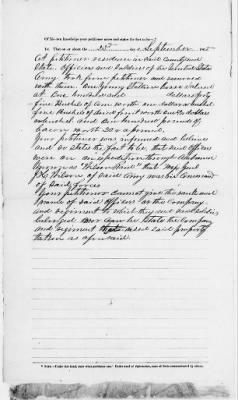 Of his own knowledge your petitioner avers and states the fact to be—
1st. That on or about the 25th day September 1865
At petitioners residence in said County and
State, Officers and Soldiers of the United State
Army took from petitioner and removed
with them. One young Sattere horse valued
at One hundred dollars fifty
five bushels of corn worth one dollar a bushel
five bushels of dried fruit worth
a bushel and one hundred pounds of
bacon worth 20 c a pound.
Your petitioner was informed and believes
and so states the fact to be, that said officers
were on an expedition through Alabama
known as "Wilson Raid" that Maj Genl
J. H. Wilson of said Army was in Command
of said forces
Your petitioner cannot give the rank and
names of said officers or the company
and regiment to which they and soldiers
belonged nor can he state the company
and regiment that used said property
taken as aforesaid.